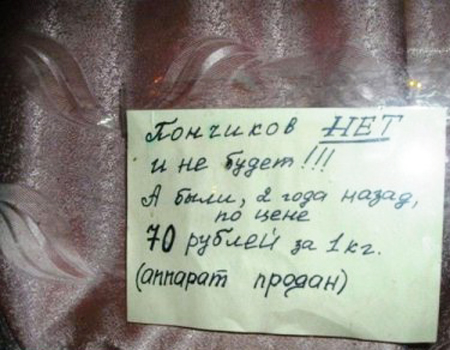 Пончиков НЕТ
и не будет!!!
А были, 2 года назад,
по цене
70 рублей за 1 кг.
(аппарат продан)